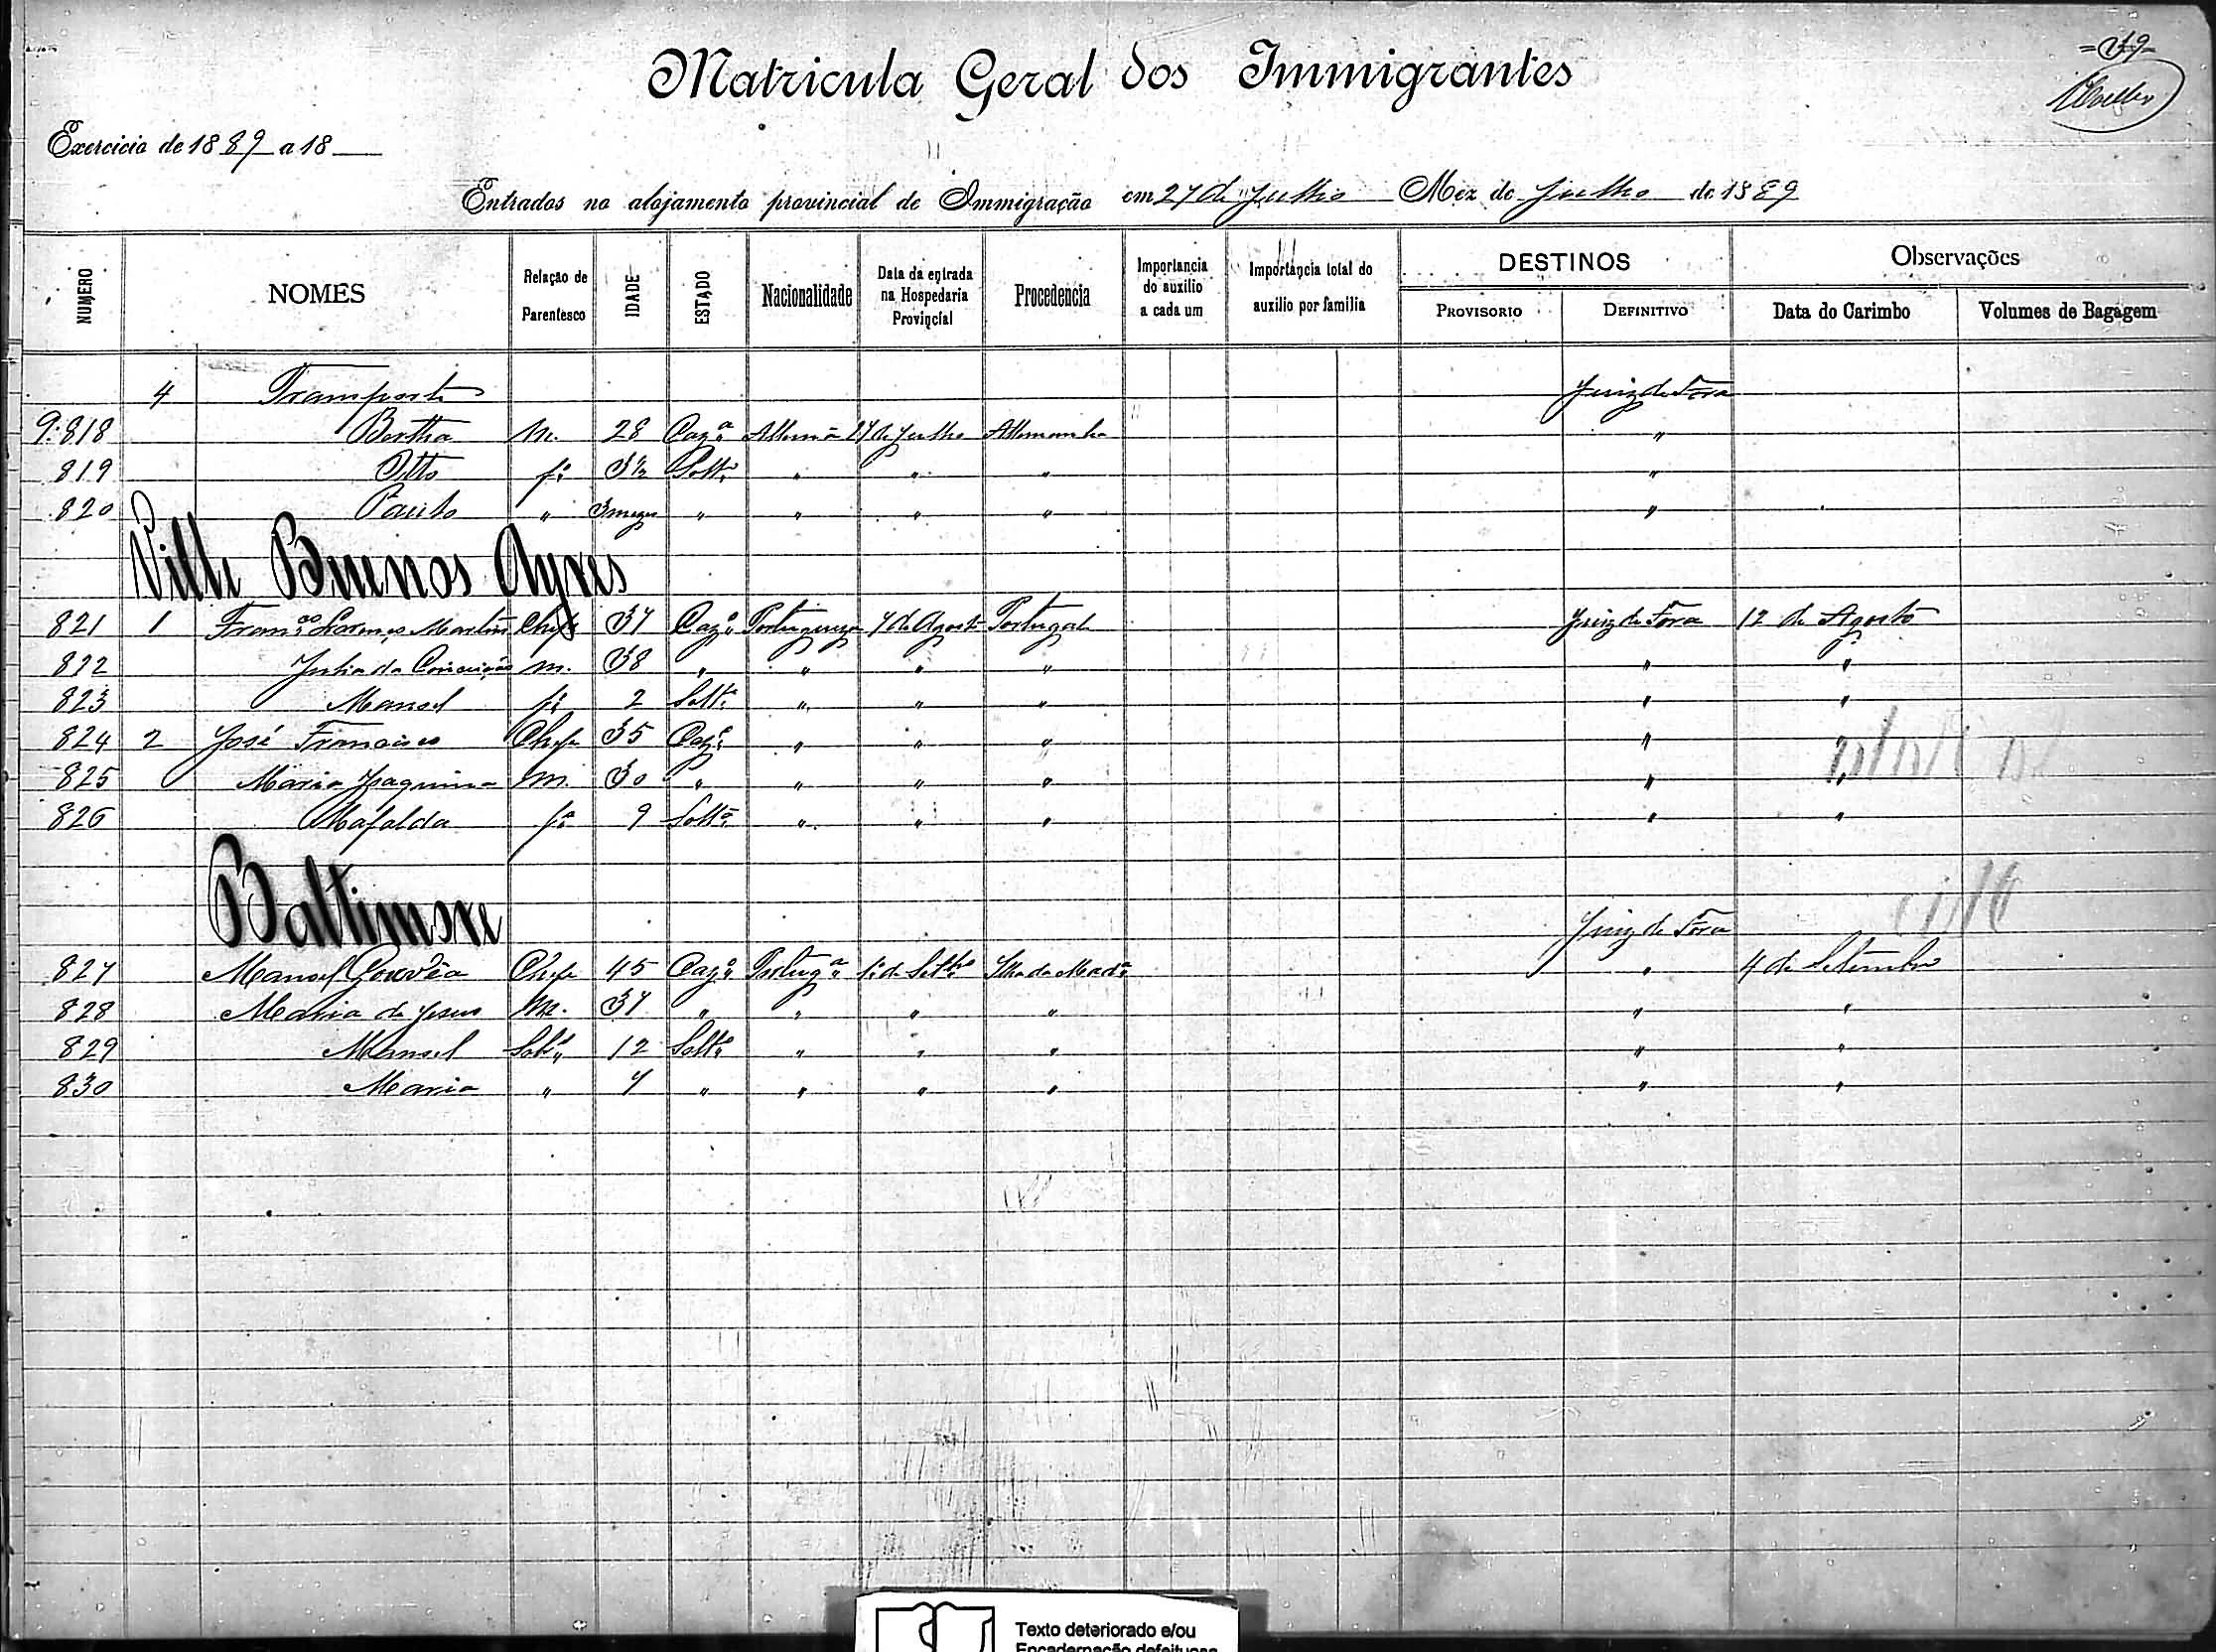 Matricula Geral dos Immigrantes
Exercicio de 1889 a 18
Entrados no alojamento provincial de Immigração em 27 de Julho Mez de Julho de 1889
NUMERO NOMES Relação de Parentesco IDADE ESTADO Nacionalidade Data da entrada na Hospedaria Provincial Procedencia Importancia do auxilio a cada um Importancia total do auxilio por familia DESTINOS PROVISORIO DEFINITIVO Observações Data do Carimbo Volumes de Bagagem
4 Transporte Juiz de Fora
9.818 Bertha M. 28 Cazª Allemã 27 de Julho Allemanha "
819 Otto fº 3½ Soltº " " " "
820 Paulo " 3 mezes " " " " "
Ville Buenos Ayres
821 1 Franco Lourenço Martins Chefe 37 Cazº Portugueza 7 de Agosto Portugal Juiz de Fora 12 de Agosto
822 Julia da Conceição m. 38 " " " " " "
823 Manoel fº 2 Soltº " " " " "
824 2 José Francisco Chefe 35 Cazº " " " " "
825 Maria Joaquina m. 30 " " " " " "
826 Mafalda fª 9 Soltª " " " " "
Baltimore
Juiz de Fora
827 Manoel Gouvêa Chefe 45 Cazº Portugª 1º de Setbro Ilha da Madª " 4 de Setembro
828 Maria de Jesus M. 37 " " " " " "
829 Manoel Sobº 12 Soltº " " " " "
830 Maria " 7 " " " " " "
Texto deteriorado e/ou
Encadernação defeituosa